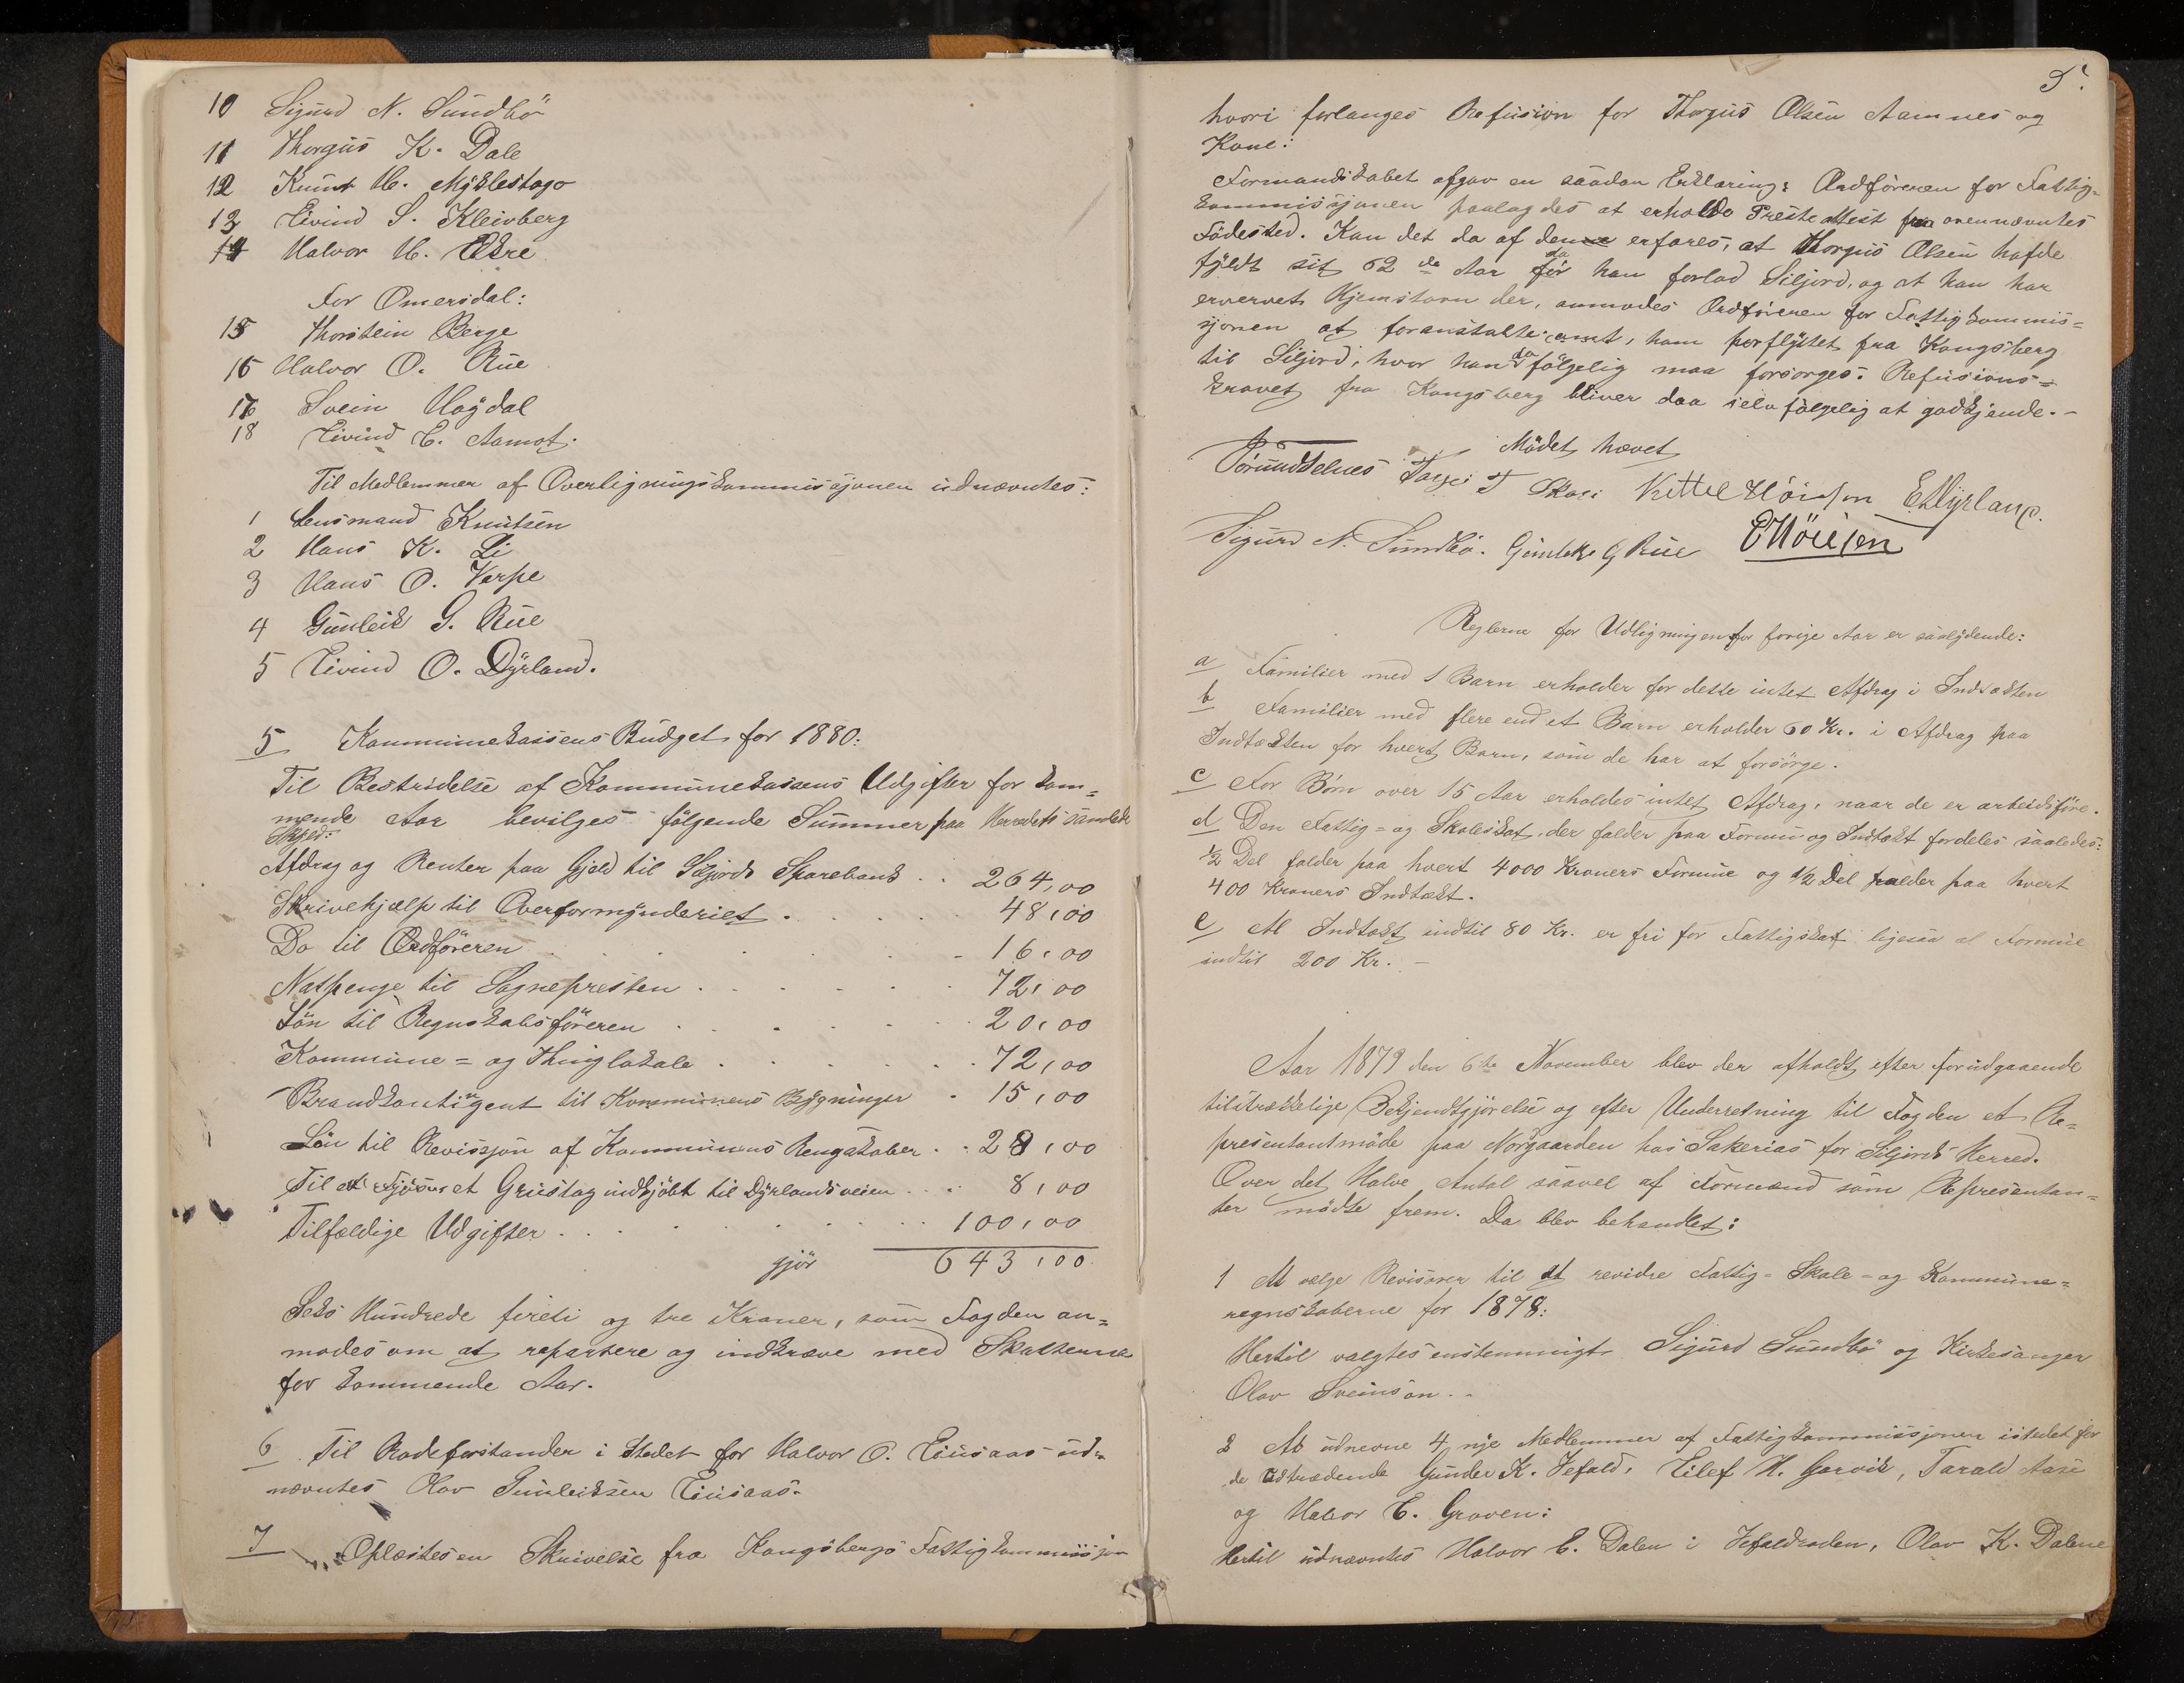 10 Sigurd N. Sundbö
11 Thorgus K. Dale
12 Knut H. Myklestago
13 Eivind S. Kleivberg
14 Halvor H. Ekre
For Omersdal:
15 Thorstein Berge
16 Halvor O. Rue
17 Svein Høydal
18 Eivind E. Aamot.
Til Medlemmer af Overligningskommissjonen udnævntes:
1 Lensmand Knutsen
2 Hans K. Li
3 Hans O. Verpe
4 Gunleik G. Rue
5 Eivind O. Dyrland.
5 Kommunekassens Budget for 1880:
Til Bestridelse af Kommunekassens Udgifter for kom=
mende Aar bevilges følgende Summer paa Herredets samlede
Skyld:
Afdrag og Renter paa Gjeld til Siljords Sparebank . . 264,00
Skrivehjælp til Overformynderiet . . . . 48,00
Do til Ordføreren . . . . - 16,00
Natpenge til Sognepresten . . . . . 72,00
Løn til Regnskabsføreren . . . . 20,00
Kommune= og Thinglokale . . . . . 72,00
Brandkontingent til Kommunens Bygninger . 15,00
Løn til Revissjon af Kommunens Rengskaber . . 28,00
Til et Grustag indkjøbt til Dyrlandsveien . . . 8,00
Tilfældige Udgifter . . . . . . . 100,00
gjör 643,00.
Seks Hundrede fireti og tre Kroner, som Fogden an=
modes om at repartere og indkræve med Skatterne
for kommende Aar.
6 Til Rodeforstander i Stedet for Halvor O. Eiusaas ud=
nævntes Olav Gunleiksen Eiusaas.
7 Oplæstes en Skrivelse fra Kongsbergs Fattigkommissjon
5.
hvori forlanges Refusion for Thorgus Olsen Aamnes og
Kone:
Formandskabet afgav en saadan Erklæring: Ordføreren for Fattig=
kommissjonen paalagdes at erholde Presteattest fra ovennævntes
Fødested. Kan det da af denne erfares, at Thorgus Olsen hafde
fyldt sit 62de Aar da han forlod Siljord, og at han har
ervervet Hjemstavn der, anmodes Ordføreren for Fattigkommis=
sjonen at foranstalte ham forflyttet fra Kongsberg
til Siljord, hvor han da følgelig maa forsørges. Refusions=
kravet fra Kongsberg bliver daa selvfølgelig at godkjende. -
Mødet hævet
Targei T Skori Kittel Höisæn E Dyrland.
Sigurd N. Sundbø. Gunleik G Rue
Reglerne for Udligningen for forige Aar er saalydende:
a Familier med 1 Barn erholder for dette intet Afdrag i Indtækten
b Familier med flere end et Barn erholder 60 Kr. i Afdrag paa
Indtækten for hvert Barn, som de har at forsørge.
c For Børn over 15 Aar erholdes intet Afdrag, naar de er arbeidsføre.
d Den Fattig= og Skoleskat, der falder paa Formue og Indtækt fordeles saaledes:
1/2 Del falder paa hvert 4000 Kroners Formue og 1/2 Del falder paa hvert
400 Kroners Indtækt.
e Al Indtækt indtil 80 Kr. er fri for Fattigskat ligesaa al Formue
indtil 200 Kr. -
Aar 1879 den 6te November blev der afholdt efter forudgaaende
tilstrækkelige Bekjendtgjørelse og efter Underretning til Fogden et Re=
presentantmøde paa Norgaarden hos Sakerias for Siljords Herred.
Over det Halve Antal saavel af Formænd som Representan=
ter mødte frem. Da blev behandlet:
1 At vælge Revisorer til at revidre Fattig= Skole= og Kommune=
regnskaberne for 1878:
Hertil valgtes enstemmigt Sigurd Sundbö og Kirkesanger
Olav Sveinson . .
2 At udnevne 4 nye Medlemmer af Fattigkommissjonen istedet for
de udtrædende Gunder K. Jefald, Eilef H. Garvik, Tarald Aase
og Halvor E. Groven:
Hertil udnævntes Halvor E. Dalen i Jefaldroden, Olav K. Dalene